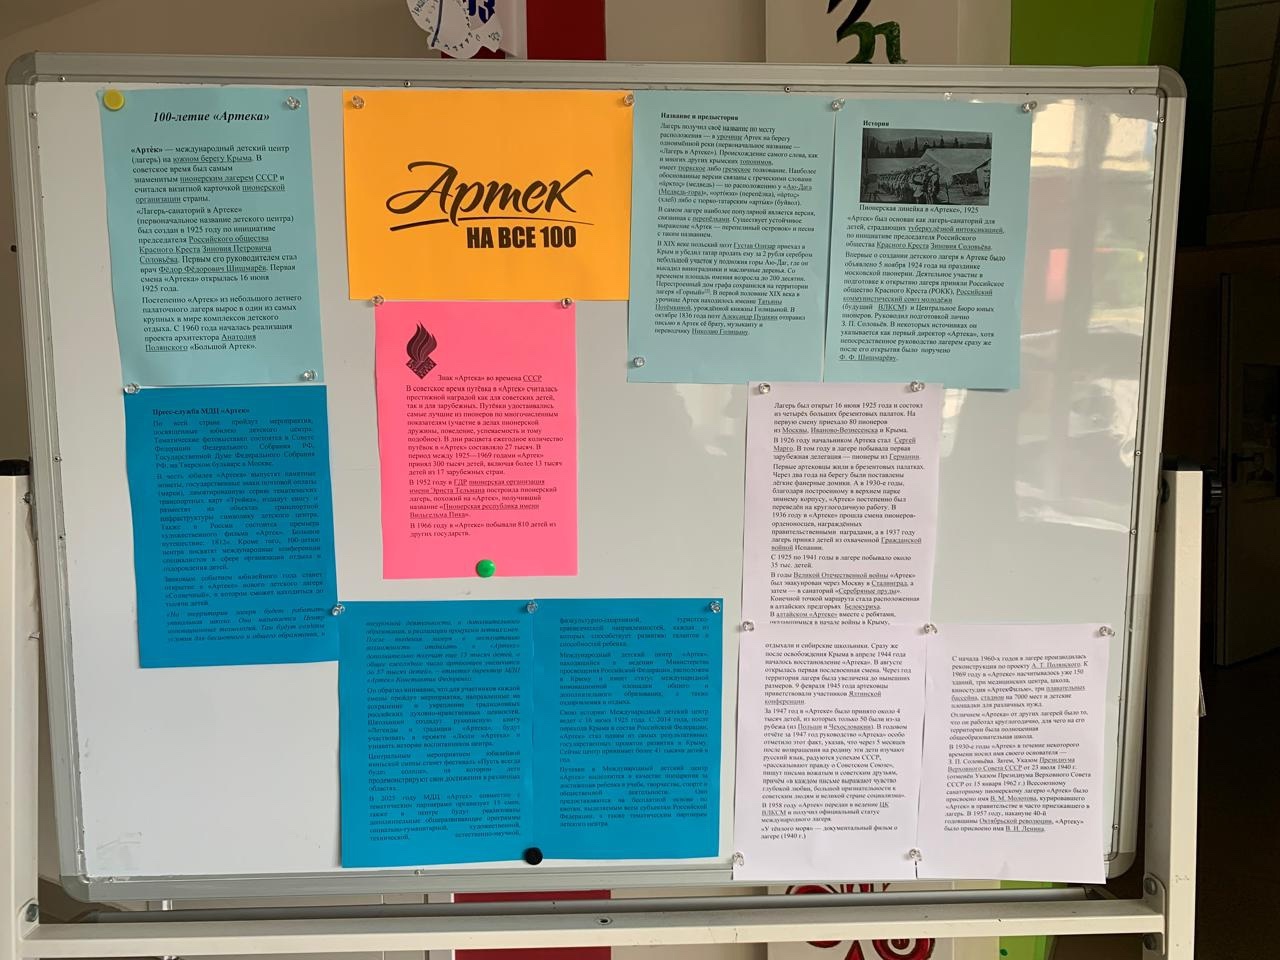 100-летие «Артека»
«Арте́к» — международный детский центр
(лагерь) на южном берегу Крыма. В
советское время был самым
знаменитым пионерским лагерем СССР и
считался визитной карточкой пионерской
организации страны.
«Лагерь-санаторий в Артеке»
(первоначальное название детского центра)
был создан в 1925 году по инициативе
председателя Российского общества
Красного Креста Зиновия Петровича
Соловьёва. Первым его руководителем стал
врач Фёдор Фёдорович Шишмарёв. Первая
смена «Артека» открылась 16 июня
1925 года.
Постепенно «Артек» из небольшого летнего
палаточного лагеря вырос в один из самых
крупных в мире комплексов детского
отдыха. С 1960 года началась реализация
проекта архитектора Анатолия
Полянского «Большой Артек».
Артек
НА ВСЕ 100
Название и предыстория
Лагерь получил своё название по месту
расположения — в урочище Артек на берегу
одноимённой реки (первоначальное название —
«Лагерь в Артеке»). Происхождение самого слова, как
и многих других крымских топонимов,
имеет тюркское либо греческое толкование. Наиболее
обоснованные версии связаны с греческими словами
«άρκτος» (медведь) — по расположению у «Аю-Дага
(Медведь-гора)», (перепёлка),
(хлеб) либо с тюрко-татарским «артык» (буйвол).
В самом лагере наиболее популярной является версия,
связанная с перепёлками. Существует устойчивое
выражение «Артек — перепелиный островок» и песня
с таким названием.
В XIX веке польский поэт Густав Олизар приехал в
Крым и убедил татар продать ему за 2 рубля серебром
небольшой участок у подножия горы Аю-Даг, где он
высадил виноградники и масличные деревья. Со
временем площадь имения возросла до 200 десятин.
Перестроенный дом графа сохранился на территории
лагеря «Горный». В первой половине XIX века в
урочище Артек находилось имение Татьяны
Потёмкиной, урождённой княжны Голицыной. В
октябре 1836 года поэт Александр Пушкин отправил
письмо в Артек её брату, музыканту и
переводчику Николаю Голицыну.
История
Пионерская линейка в «Артеке», 1925
«Артек» был основан как лагерь-санаторий для
детей, страдающих туберкулёзной интоксикацией,
по инициативе председателя Российского
общества Красного Креста Зиновия Соловьёва.
Впервые о создании детского лагеря в Артеке было
объявлено 5 ноября 1924 года на празднике
московской пионерии. Деятельное участие в
подготовке к открытию лагеря приняли Российское
общество Красного Креста (РОКК), Российский
коммунистический союз молодёжи
(будущий ВЛКСМ) и Центральное Бюро юных
пионеров. Руководил подготовкой лично
З. П. Соловьёв. В некоторых источниках он
указывается как первый директор «Артека», хотя
непосредственное руководство лагерем сразу же
после его открытия было поручено
Ф. Ф. Шишмарёву.
Знак «Артека» во времена СССР
В советское время путёвка в «Артек» считалась
престижной наградой как для советских детей,
так и для зарубежных. Путёвки удостаивались
самые лучшие из пионеров по многочисленным
показателям (участие в делах пионерской
дружины, поведение, успеваемость и тому
подобное). В дни расцвета ежегодное количество
путёвок в «Артек» составляло 27 тысяч. В
период между 1925—1969 годами «Артек»
принял 300 тысяч детей, включая более 13 тысяч
детей из 17 зарубежных стран.
В 1952 году в ГДР пионерская организация
имени Эрнста Тельмана построила пионерский
лагерь, похожий на «Артек», получивший
название «Пионерская республика имени
Вильгельма Пика».
В 1966 году в «Артеке» побывали 810 детей из
других государств.
Пресс-служба МДЦ «Артек»
По всей стране пройдут мероприятия,
посвящённые юбилею детского центра.
Тематические фотовыставки состоятся в Совете
Федерации Федерального Собрания РФ,
Государственной Думе Федерального Собрания
РФ, на Тверском бульваре в Москве.
В честь юбилея «Артека» выпустят памятные
монеты, государственные знаки почтовой оплаты
(марки), лимитированную серию тематических
транспортных карт «Тройка», издадут книгу и
разместят на объектах транспортной
инфраструктуры символику детского центра.
Также в России состоится премьера
художественного фильма «Артек. Большое
путешествие. 1812». Кроме того, 100-летию
центра посвятят международные конференции
специалистов в сфере организации отдыха и
оздоровления детей.
Знаковым событием юбилейного года станет
открытие в «Артеке» нового детского лагеря
«Солнечный», в котором сможет находиться до
тысячи детей.
«На территории лагеря будет работать
уникальная школа. Она называется Центр
инновационных технологий. Там будут созданы
условия для бесшовного и общего образования, и
внеурочной деятельности, и дополнительного
образования, и реализации программ летних смен.
После ввода лагеря в эксплуатацию
возможность отдыхать в «Артеке»
дополнительно получат еще 13 тысяч детей, и
общее ежегодное число артековцев увеличится
до 57 тысяч детей», – отметил директор МДЦ
«Артек» Константин Федоренко.
Он обратил внимание, что для участников каждой
смены пройдут мероприятия, направленные на
сохранение и укрепление традиционных
российских духовно-нравственных ценностей.
Школьники создадут рукописную книгу
«Легенды и традиции «Артека», будут
участвовать в проекте «Люди «Артека» и
узнавать истории воспитанников центра.
Центральным мероприятием юбилейной
июньской смены станет фестиваль «Пусть всегда
будет солнце», на котором дети
продемонстрируют свои достижения в различных
областях.
В 2025 году МДЦ «Артек» совместно с
тематическими партнерами организует 15 смен,
также в центре будут реализованы
дополнительные общеразвивающие программы
социально-гуманитарной, художественной,
технической, естественно-научной,
физкультурно-спортивной, туристско-
краеведческой направленностей, каждая из
которых способствует развитию талантов и
способностей ребенка.
Международный детский центр «Артек»,
находящийся в ведении Министерства
просвещения Российской Федерации, расположен
в Крыму и имеет статус международной
инновационной площадки общего и
дополнительного образования, а также
оздоровления и отдыха.
Свою историю Международный детский центр
ведет с 16 июня 1925 года. С 2014 года, после
перехода Крыма в состав Российской Федерации,
«Артек» стал одним из самых результативных
государственных проектов развития в Крыму.
Сейчас центр принимает более 41 тысячи детей в
год.
Путевки в Международный детский центр
«Артек» выделяются в качестве поощрения за
достижения ребенка в учебе, творчестве, спорте и
общественной деятельности. Они
предоставляются на бесплатной основе по
квотам, выделяемым всем субъектам Российской
Федерации, а также тематическим партнерам
детского центра.
Лагерь был открыт 16 июня 1925 года и состоял
из четырёх больших брезентовых палаток. На
первую смену приехало 80 пионеров
из Москвы, Иваново-Вознесенска и Крыма.
В 1926 году начальником Артека стал Сергей
Марго. В том году в лагере побывала первая
зарубежная делегация — пионеры из Германии.
Первые артековцы жили в брезентовых палатках.
Через два года на берегу были поставлены
лёгкие фанерные домики. А в 1930-е годы,
благодаря построенному в верхнем парке
зимнему корпусу, «Артек» постепенно был
переведён на круглогодичную работу. В
1936 году в «Артеке» прошла смена пионеров-
орденоносцев, награждённых
правительственными наградами, а в 1937 году
лагерь принял детей из охваченной Гражданской
войной Испании.
С 1925 по 1941 годы в лагере побывало около
35 тыс. детей.
В годы Великой Отечественной войны «Артек»
был эвакуирован через Москву в Сталинград, а
затем — в санаторий «Серебряные пруды».
Конечной точкой маршрута стала расположенная
в алтайских предгорьях Белокуриха.
В алтайском «Артеке» вместе с ребятами,
оказавшимися в начале войны в Крыму,
отдыхали и сибирские школьники. Сразу же
после освобождения Крыма в апреле 1944 года
началось восстановление «Артека». В августе
открылась первая послевоенная смена. Через год
территория лагеря была увеличена до нынешних
размеров. 9 февраля 1945 года артековцы
приветствовали участников Ялтинской
конференции.
За 1947 год в «Артеке» было принято около 4
тысяч детей, из которых только 50 были из-за
рубежа (из Польши и Чехословакии). В годовом
отчёте за 1947 год руководство «Артека» особо
отметило этот факт, указав, что через 5 месяцев
после возвращения на родину эти дети изучают
русский язык, радуются успехам СССР,
«рассказывают правду о Советском Союзе»,
пишут письма вожатым и советским друзьям,
причём «в каждом письме выражают чувство
глубокой любви, большой признательности к
советским людям и великой стране социализма».
В 1958 году «Артек» передан в ведение ЦК
ВЛКСМ и получил официальный статус
международного лагеря.
«У тёплого моря» — документальный фильм о
лагере (1940 г.)
С начала 1960-х годов в лагере производилась
реконструкция по проекту А. Т. Полянского. К
1969 году в «Артеке» насчитывалось уже 150
зданий, три медицинских центра, школа,
киностудия «АртекФильм», три плавательных
бассейна, стадион на 7000 мест и детские
площадки для различных нужд.
Отличием «Артека» от других лагерей было то,
что он работал круглогодично, для чего на его
территории была полноценная
общеобразовательная школа.
В 1930-е годы «Артек» в течение некоторого
времени носил имя своего основателя —
З. П. Соловьёва. Затем, Указом Президиума
Верховного Совета СССР от 23 июля 1940 г.
(отменён Указом Президиума Верховного Совета
СССР от 15 января 1962 г.) Всесоюзному
санаторному пионерскому лагерю «Артек» было
присвоено имя В. М. Молотова, курировавшего
«Артек» в правительстве и часто приезжавшего в
лагерь. В 1957 году, накануне 40-й
годовщины Октябрьской революции, «Артеку»
было присвоено имя В. И. Ленина.